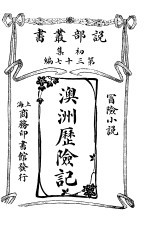 說部叢書
初集
第三十七編
冒險小說
澳洲歷險記
上海
商務印書館發行